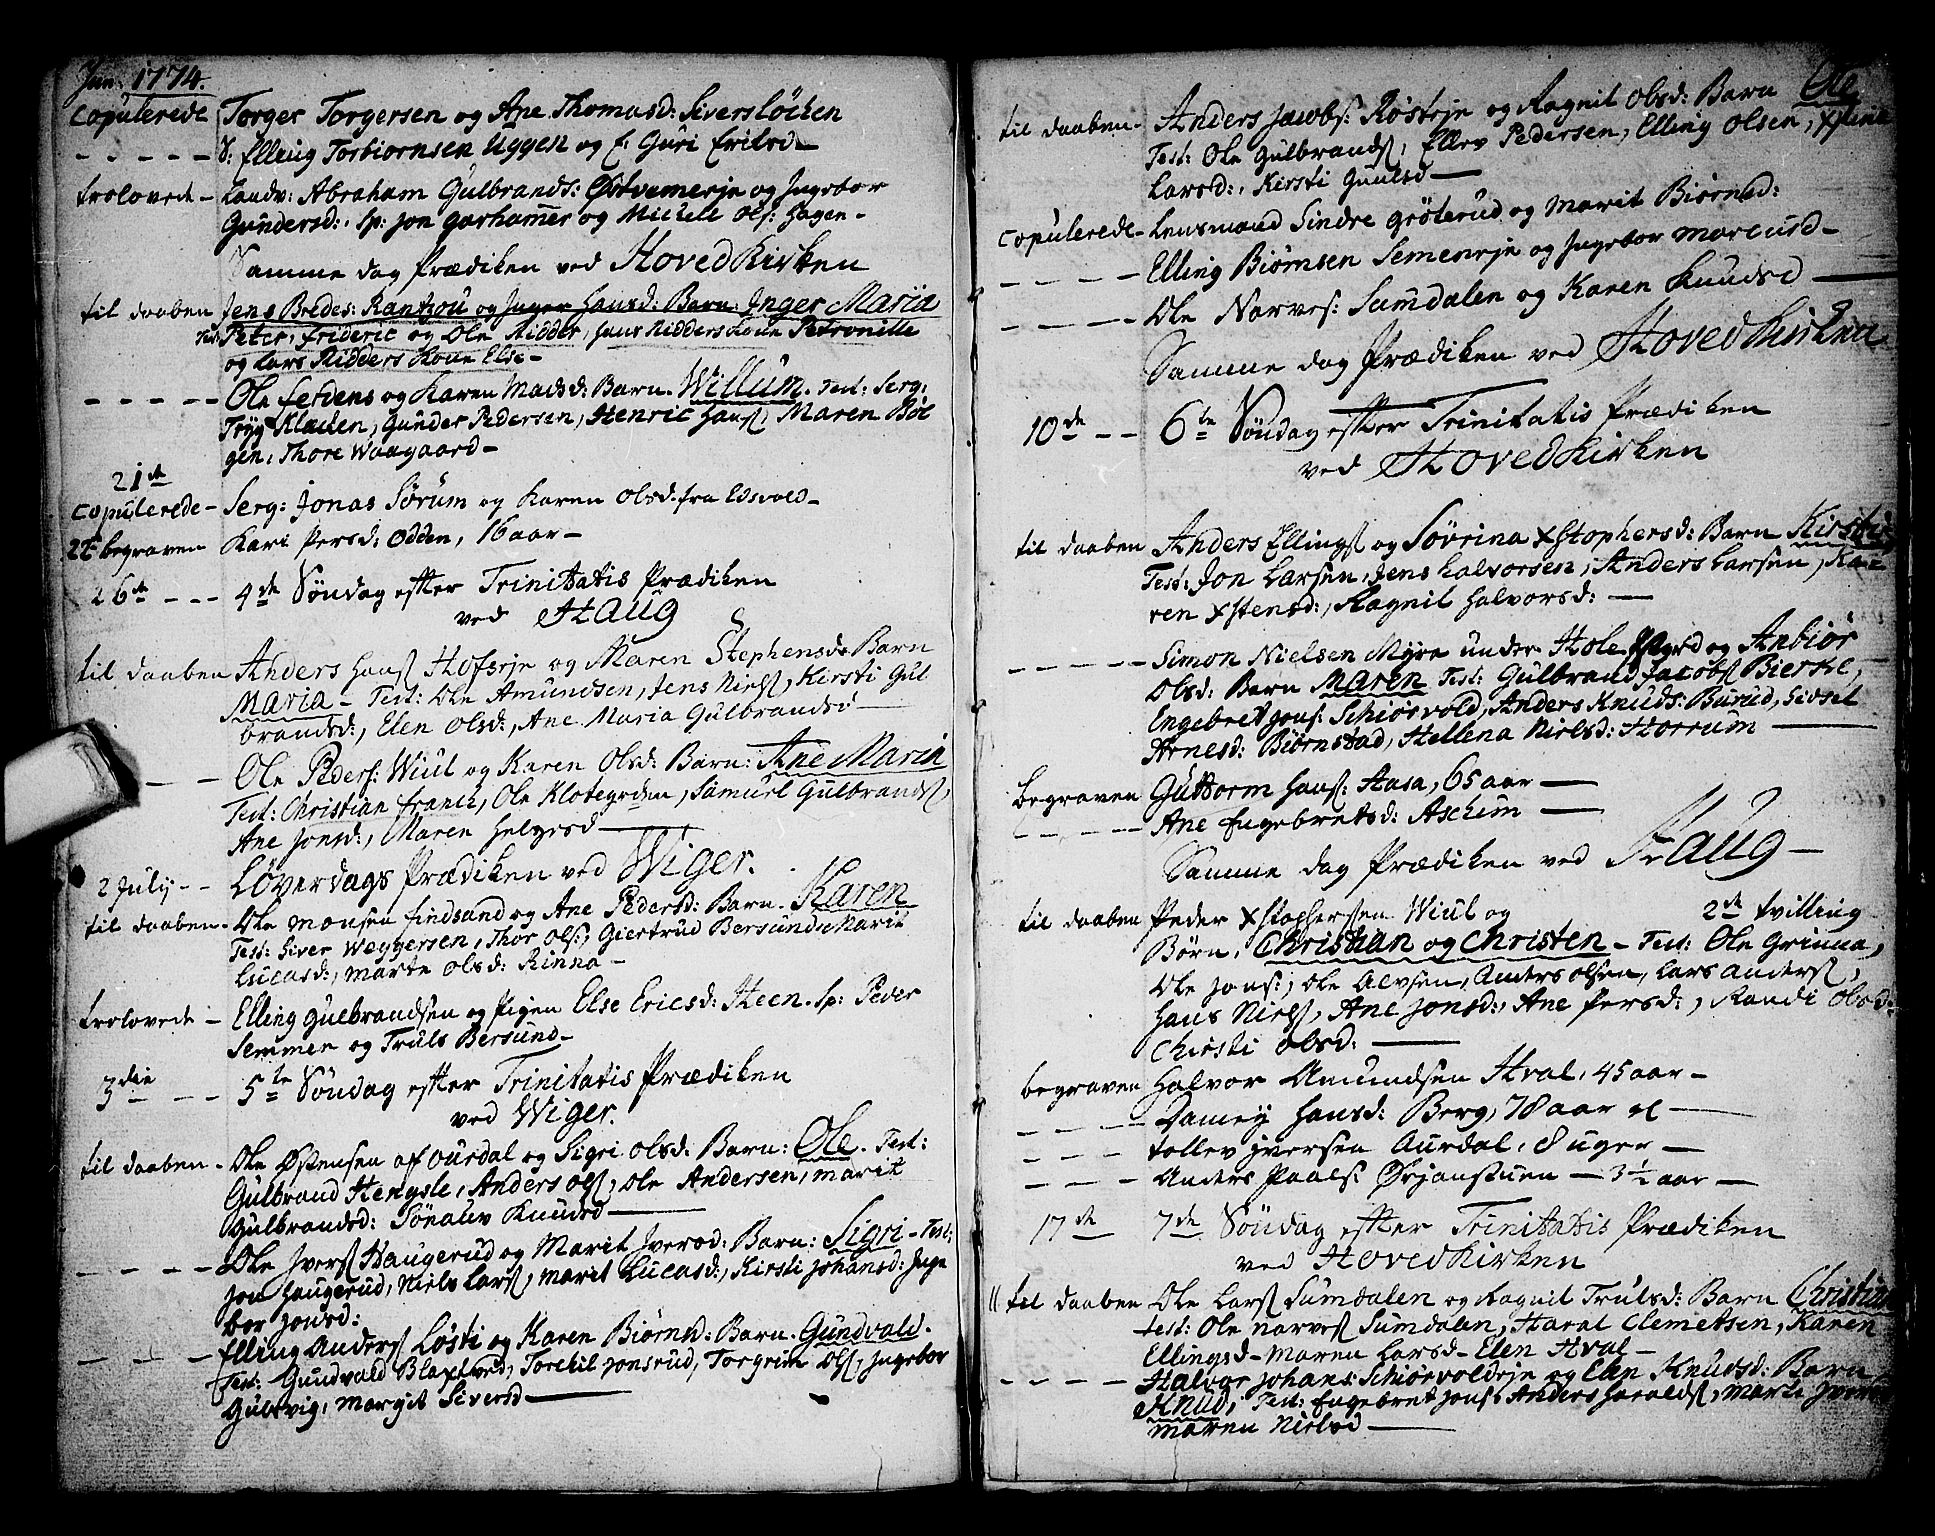 Jun: 1774.
Copulerede Torger Torgersen og Ane Thomasd: Siversløcken
- - - - - S: Elling Torbiornsen Uggen og E: Guri Ericsd -
trolovede - Landv: Abraham Gulbrands: Østvamerje og Ingebor
Gundersd: . Sp: Jon Garhamer og Michele Ols: Hagen -
Samme dag Prædiken ved HovedKirken
til daaben Jens Bredes: Rantzou og Inger Hansd: Barn: Inger Maria
Tes: Peter, Frideric og Ole Ridder, Hans Ridders Kone Petronille
og Lars Ridders Kone Else -
- - - - - Ole Serdens og Karen Madsd: Barn. Willum. Test: Serg:
Tryg Kladen, Gunder Pedersen, Henric Hans, Maren Böl
gen, Thore Waagaard -
21de
Copulerede - Serg: Jonas Sørum og Karen Olsd: fra Edsvold -
22 begraven Kari Persd: Odden, 16 aar -
26de - - - 4de Søndag efter Trinitatis Prædiken
ved Haug
til daaben Anders Hans Hofsrje og Maren Stephensd: Barn
Maria - Test: Ole Amundsen, Jens Niels, Kirsti Gul
brandsd:, Elen Olsd:, Ane Maria Gulbrandsd
- - Ole Peders: Wiul og Karen Olsd: Barn: Ane Maria
Test: Christian Franck, Ole Klotegrden, Samuel Gulbrands,
Ane Jonsd:, Maren Helgesd -
2 July - - Løverdags Prædiken ved Wiger.
til daaben - Ole Monsen Findsand og Ane Pedersd: Barn. Karen
Test: Siver Weggersen, Thor Ols:, Giertrud Bersund, Marit
Lucasd:, Marte Olsd: Rinna -
trolovede - Elling Gulbrandsen og Pigen Else Ericsd: Steen. Sp: Peder
Semmen og Truls Bersund -
3die - - 5te Søndag efter Trinitatis Prædiken
ved Wiger.
til daaben - Ole Østensen af Ourdal og Sigri Olsd: Barn: Ole. Test:
Gulbrand Hengsle, Anders Ols, Ole Andersen, Marit
Gulbrandsd: Sønalev Knudsd -
- - - - Ole Ivers Haugerud og Marit Iversd: Barn: Sigri - Test:
Jon Haugerud, Niels Lars, Marit Lucasd:, Kirsti Johansd: Inge
bor Jonsd:
- - - - Elling Anders Løsti og Karen Biørnsd: Barn. Gundvald.
Test: Gundvald Blaxtved, Torckil Jonsrud, Torgrim Ols, Ingebor
Gulsvig, Margit Siversd -
til daaben - Anders Jacobs: Røstrje og Ragnil Olsd: Barn Ole
Test: Ole Gulbrands, Ellev Pedersen, Elling Olsen, Xstine
Larsd:, Kirsti Guulsd -
Copulerede - Lensmand Sindre Grøterud og Marit Biørnsd:
- - - - Elling Biørnsen Semenrje og Ingebor Marcusd -
- - - - Ole Narves: Sumdalen og Karen Knudsd -
Samme dag Prædiken ved HovedKirken
10de - - 6te Søndag efter Trinitatis Prædiken
ved HovedKirken
til daaben Anders Ellings og Søvrina Xstophersd: Barn Kirsti,
Test: Jon Larsen, Jens Halvorsen, Anders Larsen, Ka-
ren Xstensd:, Ragnil Halvorsd: -
- - - - - Simon Nielsen Myra under Hole Pgrd og Anbiör
Olsd: Barn Maren Test: Gulbrand Jacobs Bierke,
Engebret Jons: Schiørvold, Anders Knuds: Burud, Sidsel
Arnesd: Biørnstad, Hellena Nielsd: Horrum -
begraven Guttorm Hans: Aasa, 65 aar -
- - - - - Ane Engebretsd: Aschim -
Samme dag Prædiken ved Haug -
til daaben Peder Xstophersen Wiul og 2de tvilling
Børn, Christian og Christen - Test: Ole Grinna,
Ole Jons:, Ole Alvsen, Anders Olsen, Lars Anders,
Hans Niels, Ane Jonsd:, Ane Persd:, Randi Olsd:
Chirsti Olsd: -
begraven Halvor Amundsen Hval, 45 aar -
- - - - Damey Hansd: Berg, 78 aar gl -
- - - - Tollev Iversen Aurdal, 8 uger -
- - - - Anders Paals: Ørjanstuen - 3 1/2 aar -
17de 7de Søndag efter Trinitatis Prædiken
ved HovedKirken
til daaben Ole Lars Sumdalen og Ragnil Trulsd: Barn Christian
Test: Ole Narves Sumdalen, Haral Clemetsen, Karen
Ellingsd - Maren Larsd - Elen Hval -
- - - - Halvor Johans: Schiørvoldrje og Elen Knudsd: Barn
Knud, Test: Engebret Jons: Anders Haralds, Marte Iversd
Maren Nielsd -